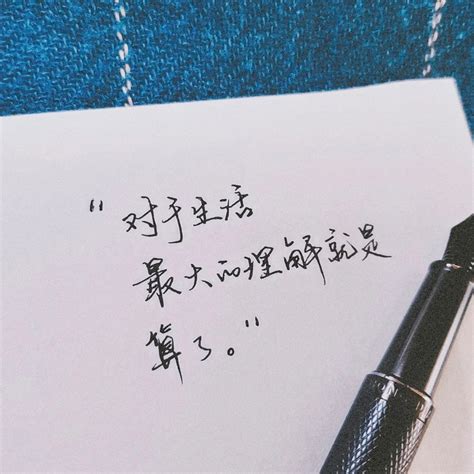 “对于生活
最大的理解就是
算了。”